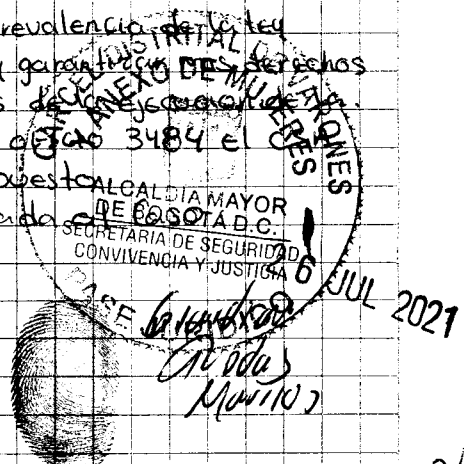 revalencia de la ley
y garantizar mis derechos
s de la ejecucion de
oficio 3484 el
puesto
ada el
CARCEL DISTRITAL DE VARONES
ANEXO DE MUJERES
ALCALDIA MAYOR
DE BOGOTÁ D.C.
SECRETARIA DE SEGURIDAD
CONVIVENCIA Y JUSTICIA
26 JUL 2021
PASE